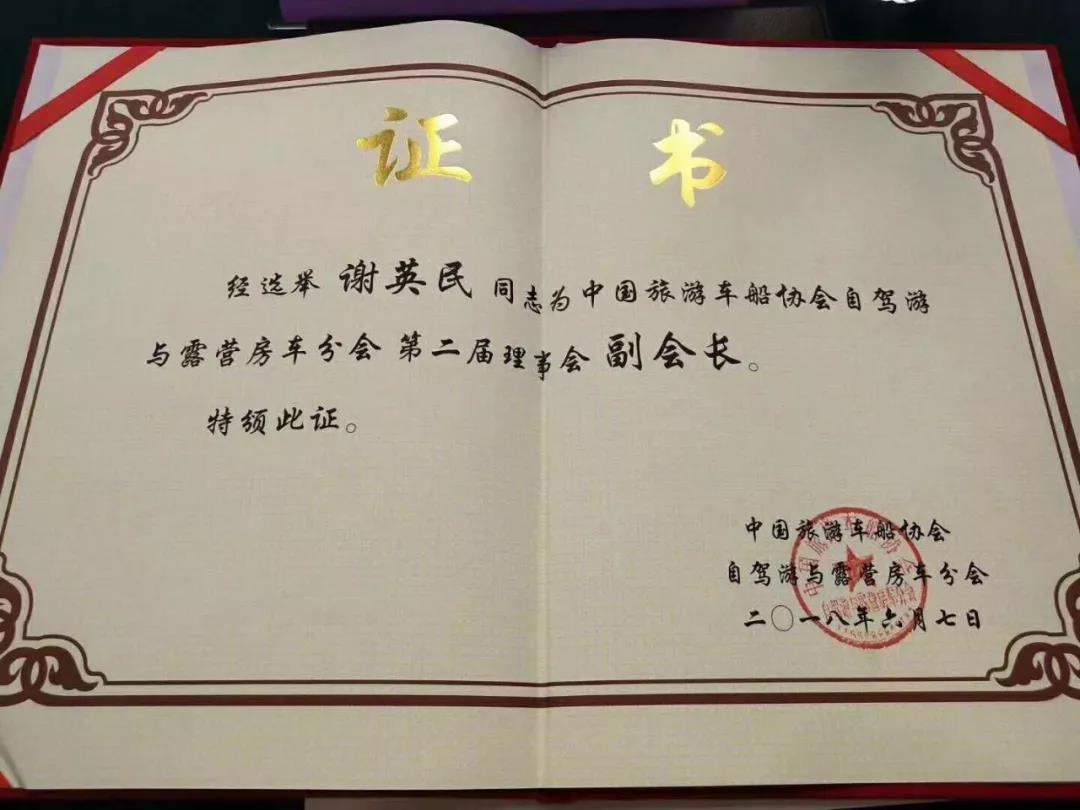 证书
经选举 谢英民 同志为中国旅游车船协会自驾游
与露营房车分会 第二届理事会 副会长。
特颁此证。
中国旅游车船协会
自驾游与露营房车分会
二〇一八年六月七日